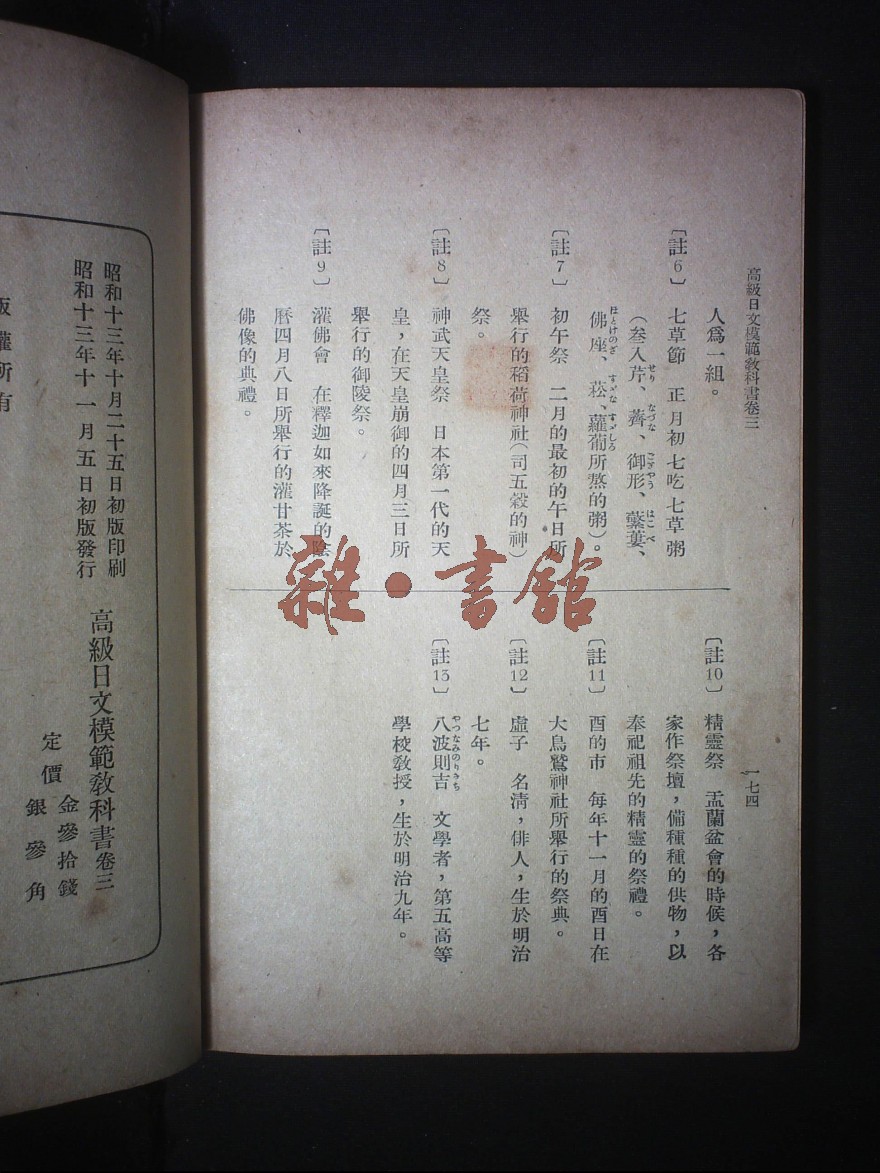 高級日文模範教科書卷三
人爲一組。
〔註6〕 七草節 正月初七吃七草粥
（叁入芹、薺、御形、蘩蔞、
せり なづな ごぎやう はこべ
佛座、菘、蘿蔔所熬的粥）。
ほとけのざ すゞな すゞしろ
〔註7〕 初午祭 二月的最初的午日所
舉行的稻荷神社（司五穀的神）
祭。
〔註8〕 神武天皇祭 日本第一代的天
皇，在天皇崩御的四月三日所
舉行的御陵祭。
〔註9〕 灌佛會 在釋迦如來降誕的陰
曆四月八日所舉行的灌甘茶於
佛像的典禮。
一七四
〔註10〕 精靈祭 盂蘭盆會的時候，各
家作祭壇，備種種的供物，以
奉祀祖先的精靈的祭禮。
〔註11〕 酉的市 每年十一月的酉日在
大鳥鷲神社所舉行的祭典。
〔註12〕 虛子 名清，俳人，生於明治
七年。
〔註13〕 八波則吉 文學者，第五高等
やつなみのりきち
學校敎授，生於明治九年。
雜・書館
昭和十三年十月二十五日初版印刷
昭和十三年十一月五日初版發行
高級日文模範敎科書卷三
定價 金參拾錢
銀參角
版權所有